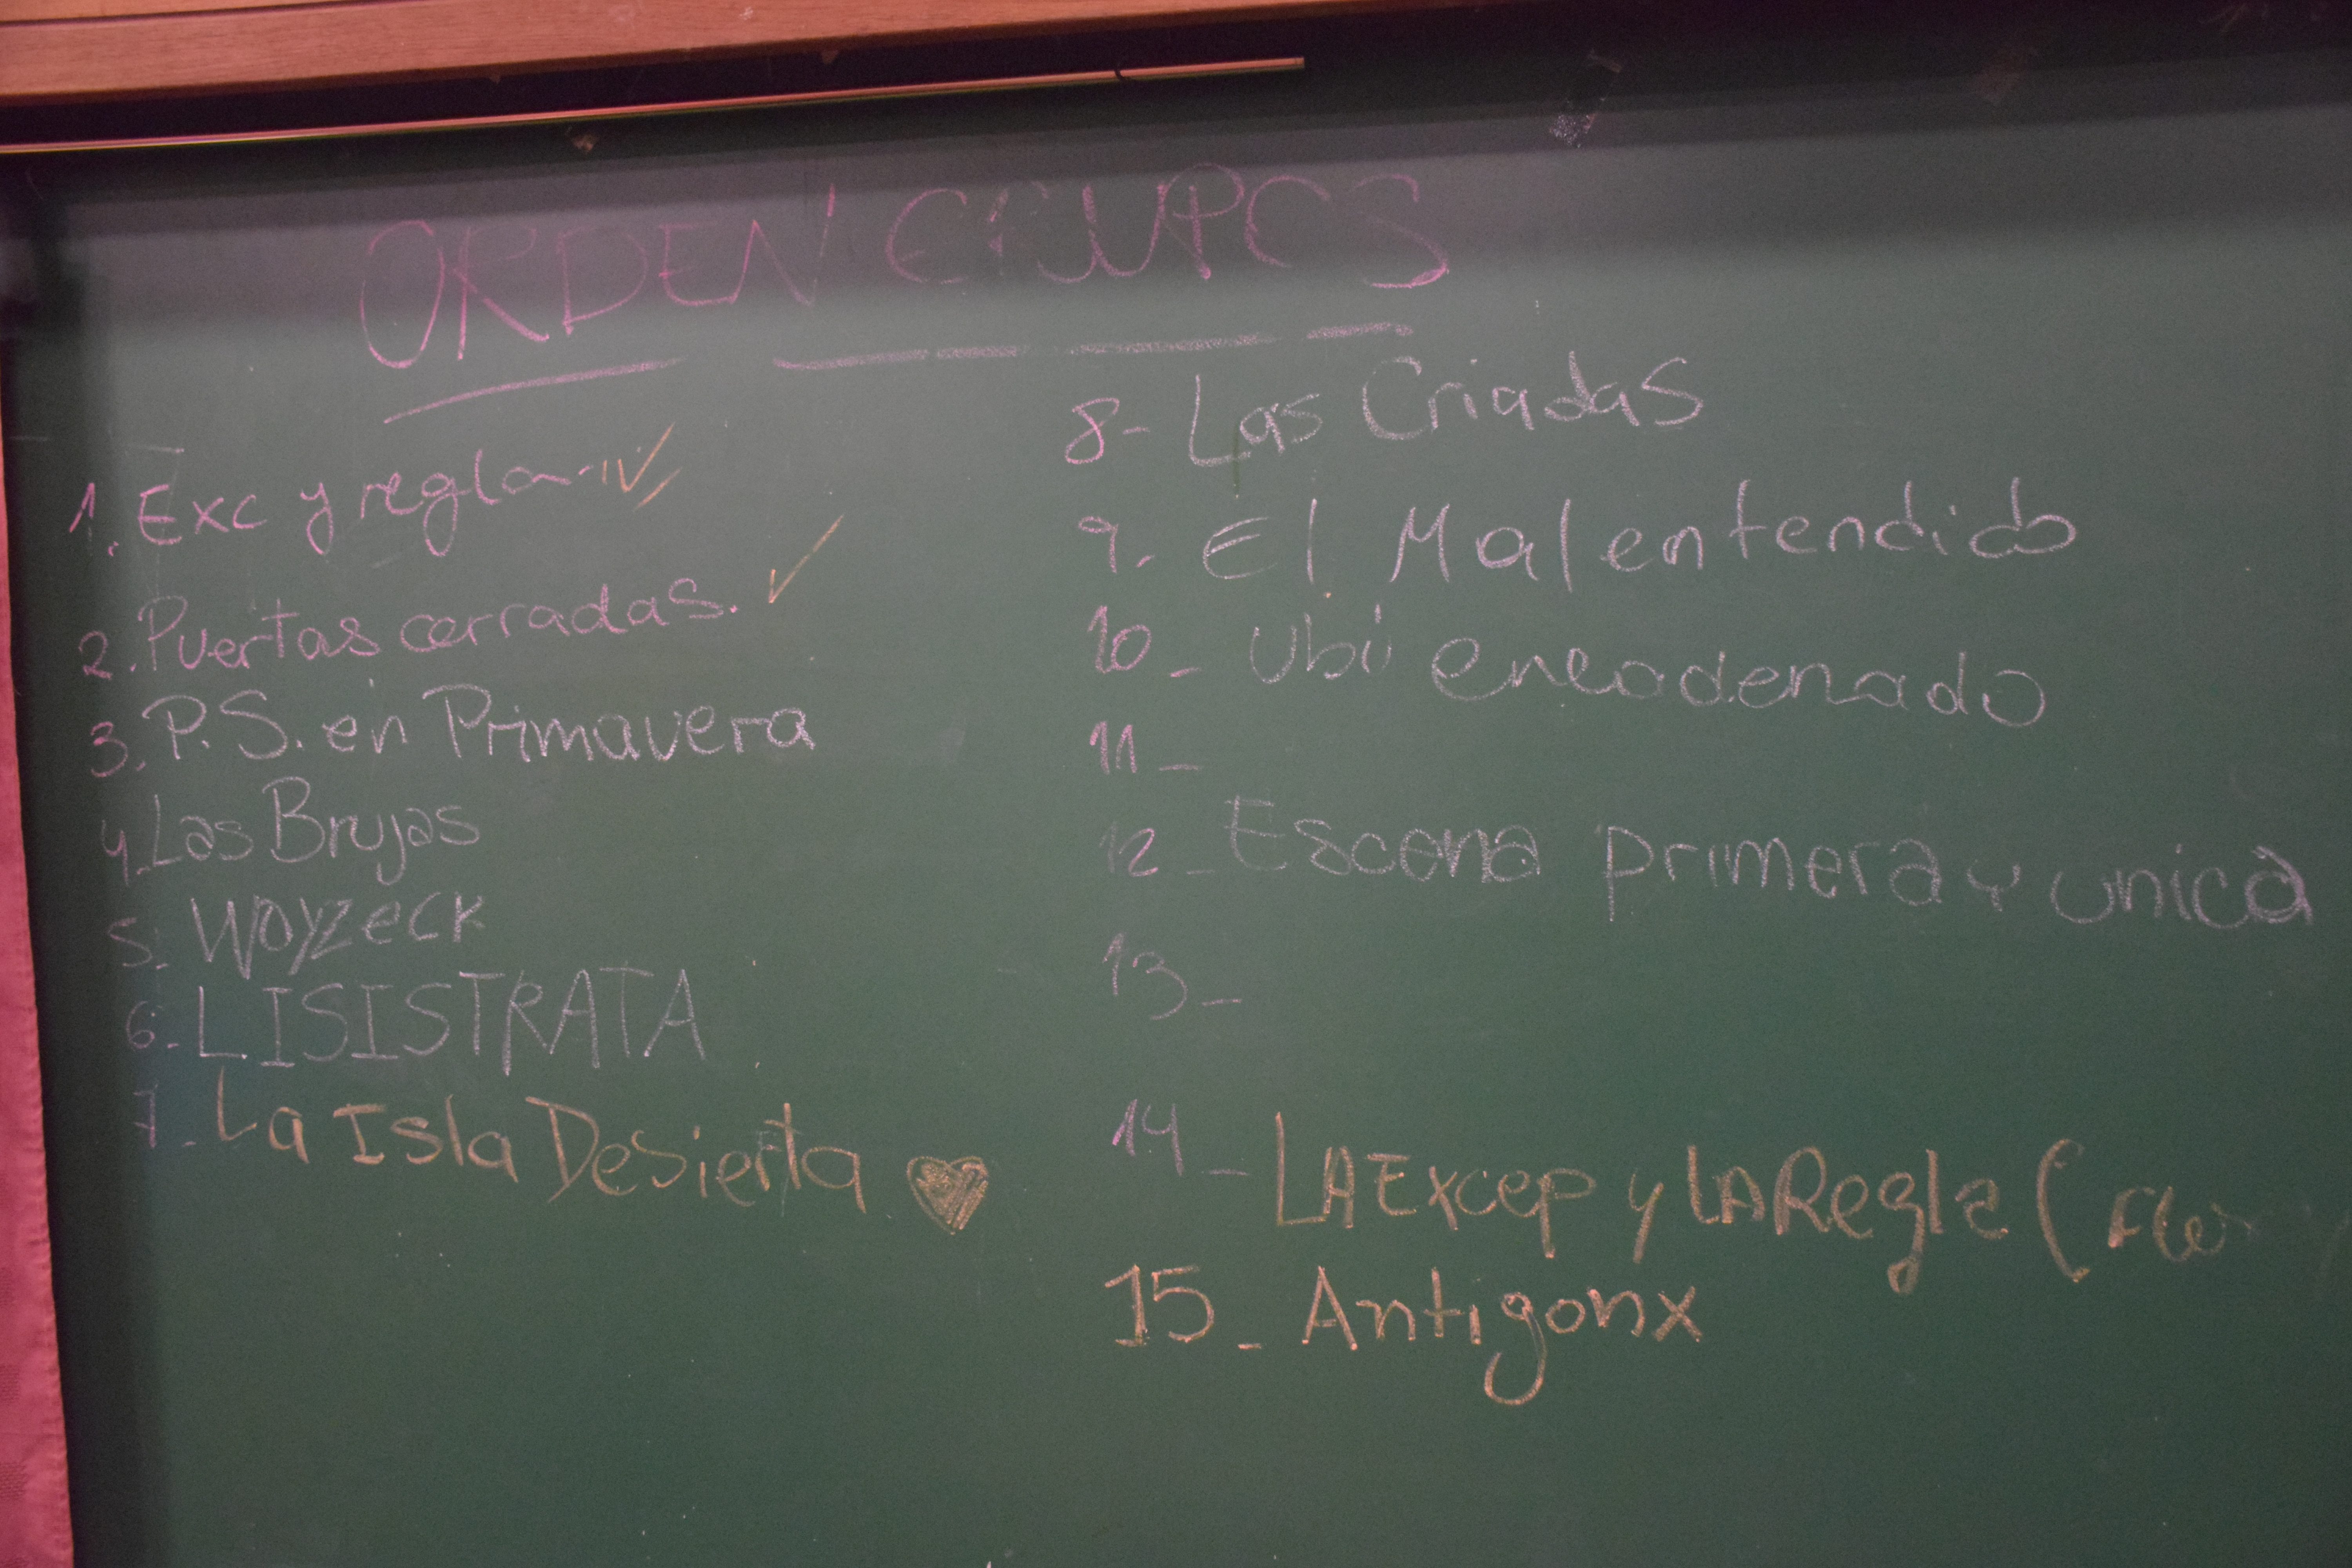 ORDEN EQUIPOS
1. Exc y regla.
2. Puertas cerradas.
3. P.S. en Primavera
4. Las Brujas
5. Woyzeck
6. LISISTRATA
7. La Isla Desierta
8- Las Criadas
9. El Malentendido
10_ Ubú encadenado
11_
12_ Escena primera y unica
13_
14_ LA Excep y LA Regla (
15_ Antigonx